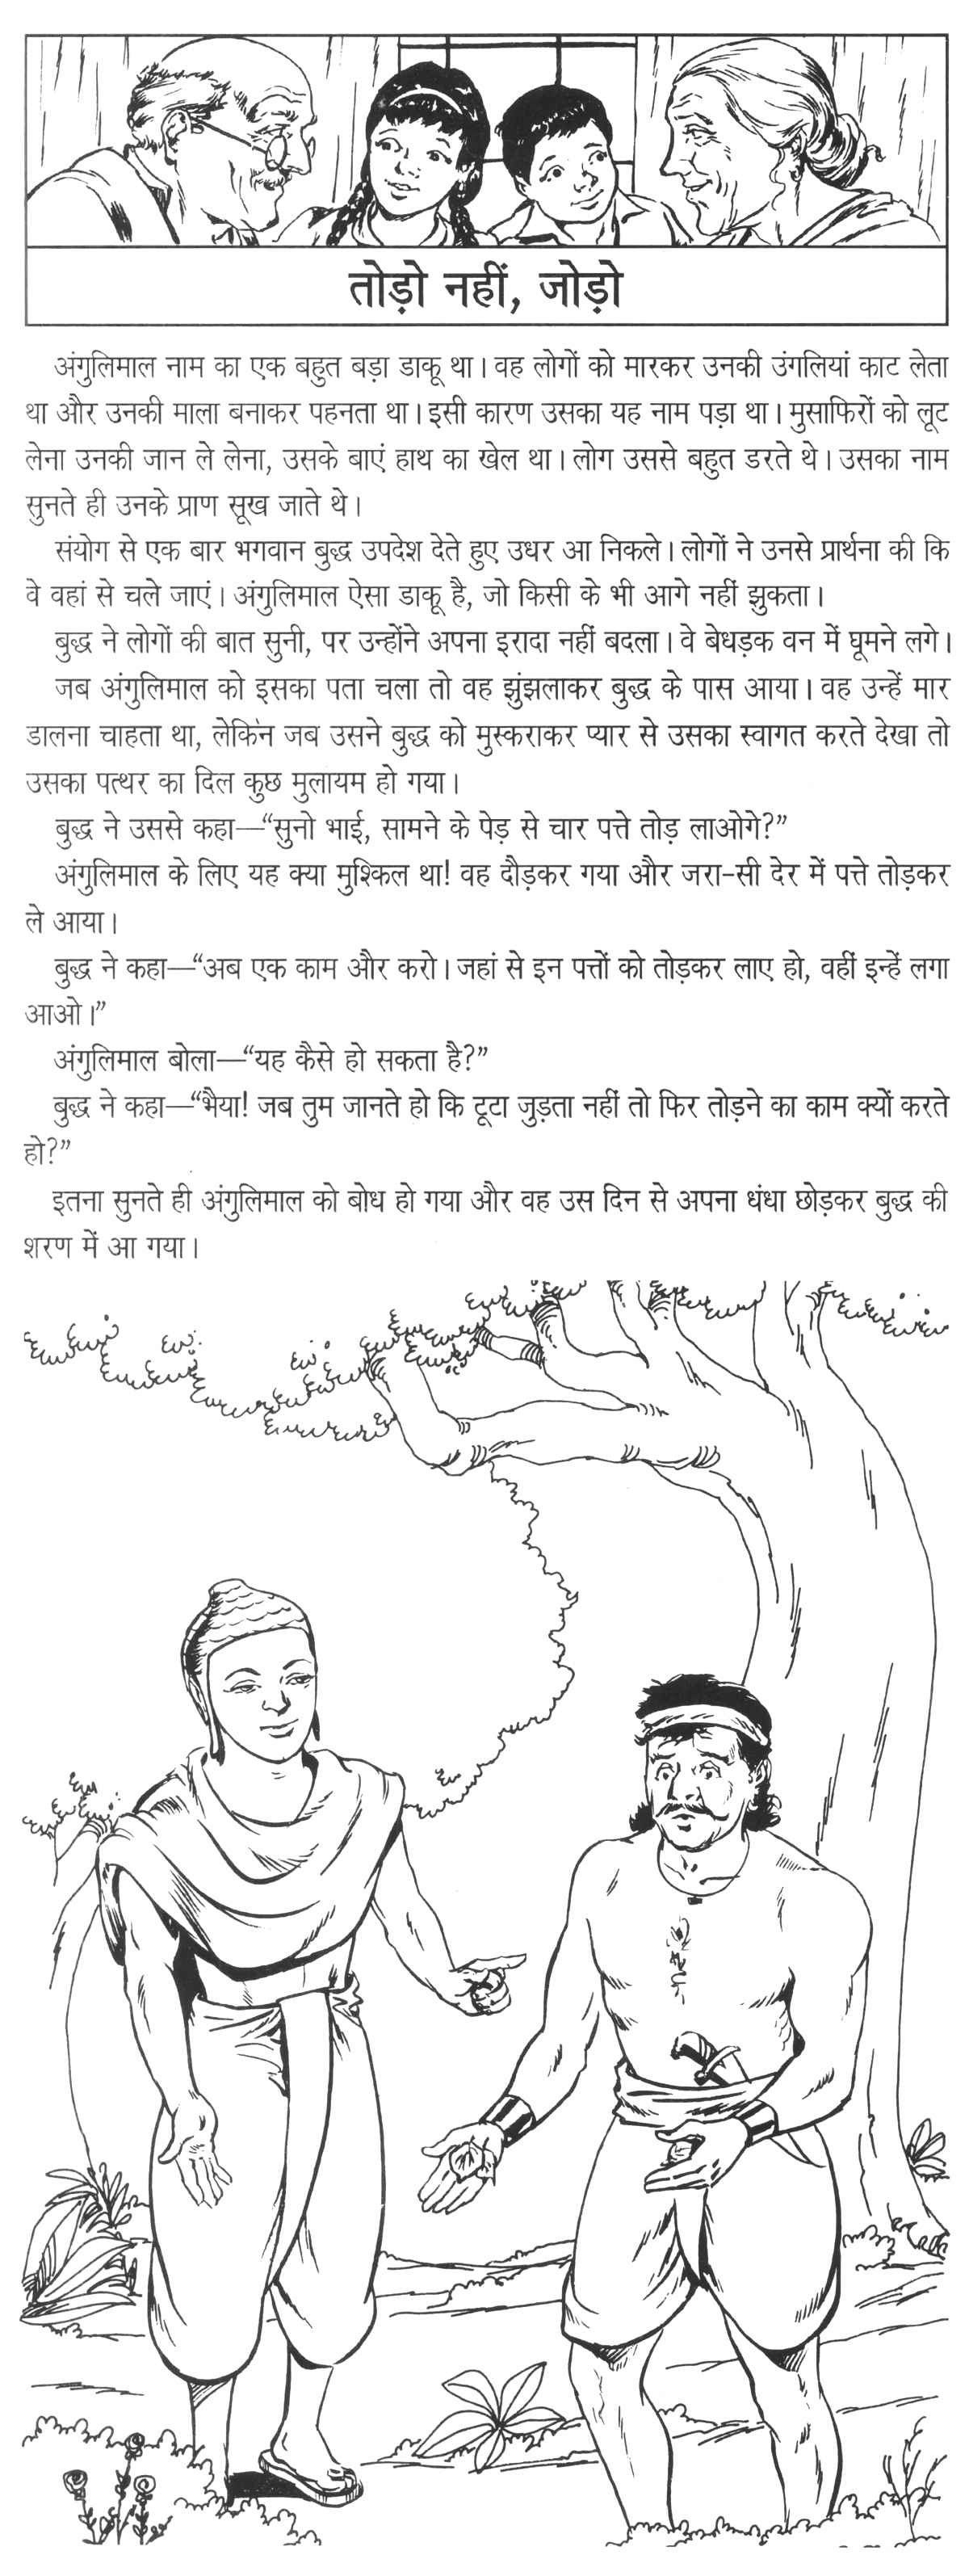 तोड़ो नहीं, जोड़ो
अंगुलिमाल नाम का एक बहुत बड़ा डाकू था। वह लोगों को मारकर उनकी उंगलियां काट लेता
था और उनकी माला बनाकर पहनता था। इसी कारण उसका यह नाम पड़ा था। मुसाफिरों को लूट
लेना उनकी जान ले लेना, उसके बाएं हाथ का खेल था। लोग उससे बहुत डरते थे। उसका नाम
सुनते ही उनके प्राण सूख जाते थे।
संयोग से एक बार भगवान बुद्ध उपदेश देते हुए उधर आ निकले। लोगों ने उनसे प्रार्थना की कि
वे वहां से चले जाएं। अंगुलिमाल ऐसा डाकू है, जो किसी के भी आगे नहीं झुकता।
बुद्ध ने लोगों की बात सुनी, पर उन्होंने अपना इरादा नहीं बदला। वे बेधड़क वन में घूमने लगे।
जब अंगुलिमाल को इसका पता चला तो वह झुंझलाकर बुद्ध के पास आया। वह उन्हें मार
डालना चाहता था, लेकिन जब उसने बुद्ध को मुस्कराकर प्यार से उसका स्वागत करते देखा तो
उसका पत्थर का दिल कुछ मुलायम हो गया।
बुद्ध ने उससे कहा—“सुनो भाई, सामने के पेड़ से चार पत्ते तोड़ लाओगे?”
अंगुलिमाल के लिए यह क्या मुश्किल था! वह दौड़कर गया और जरा-सी देर में पत्ते तोड़कर
ले आया।
बुद्ध ने कहा—“अब एक काम और करो। जहां से इन पत्तों को तोड़कर लाए हो, वहीं इन्हें लगा
आओ।”
अंगुलिमाल बोला—“यह कैसे हो सकता है?”
बुद्ध ने कहा—“भैया! जब तुम जानते हो कि टूटा जुड़ता नहीं तो फिर तोड़ने का काम क्यों करते
हो?”
इतना सुनते ही अंगुलिमाल को बोध हो गया और वह उस दिन से अपना धंधा छोड़कर बुद्ध की
शरण में आ गया।